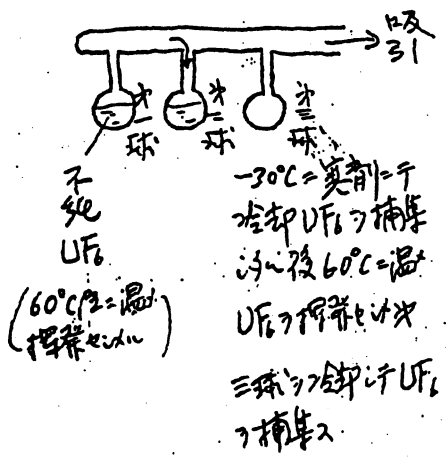 吸引
第一球
第二球
第三球
不純UF₆
(60°C位ニ温メ
揮発セシメル)
-30°Cニ寒剤ニテ
冷却UF₆ヲ捕集
次ニ後60°Cニ温メ
UF₆ヲ揮発セシメ第
三球ヲ冷却シテUF₆
ヲ捕集ス